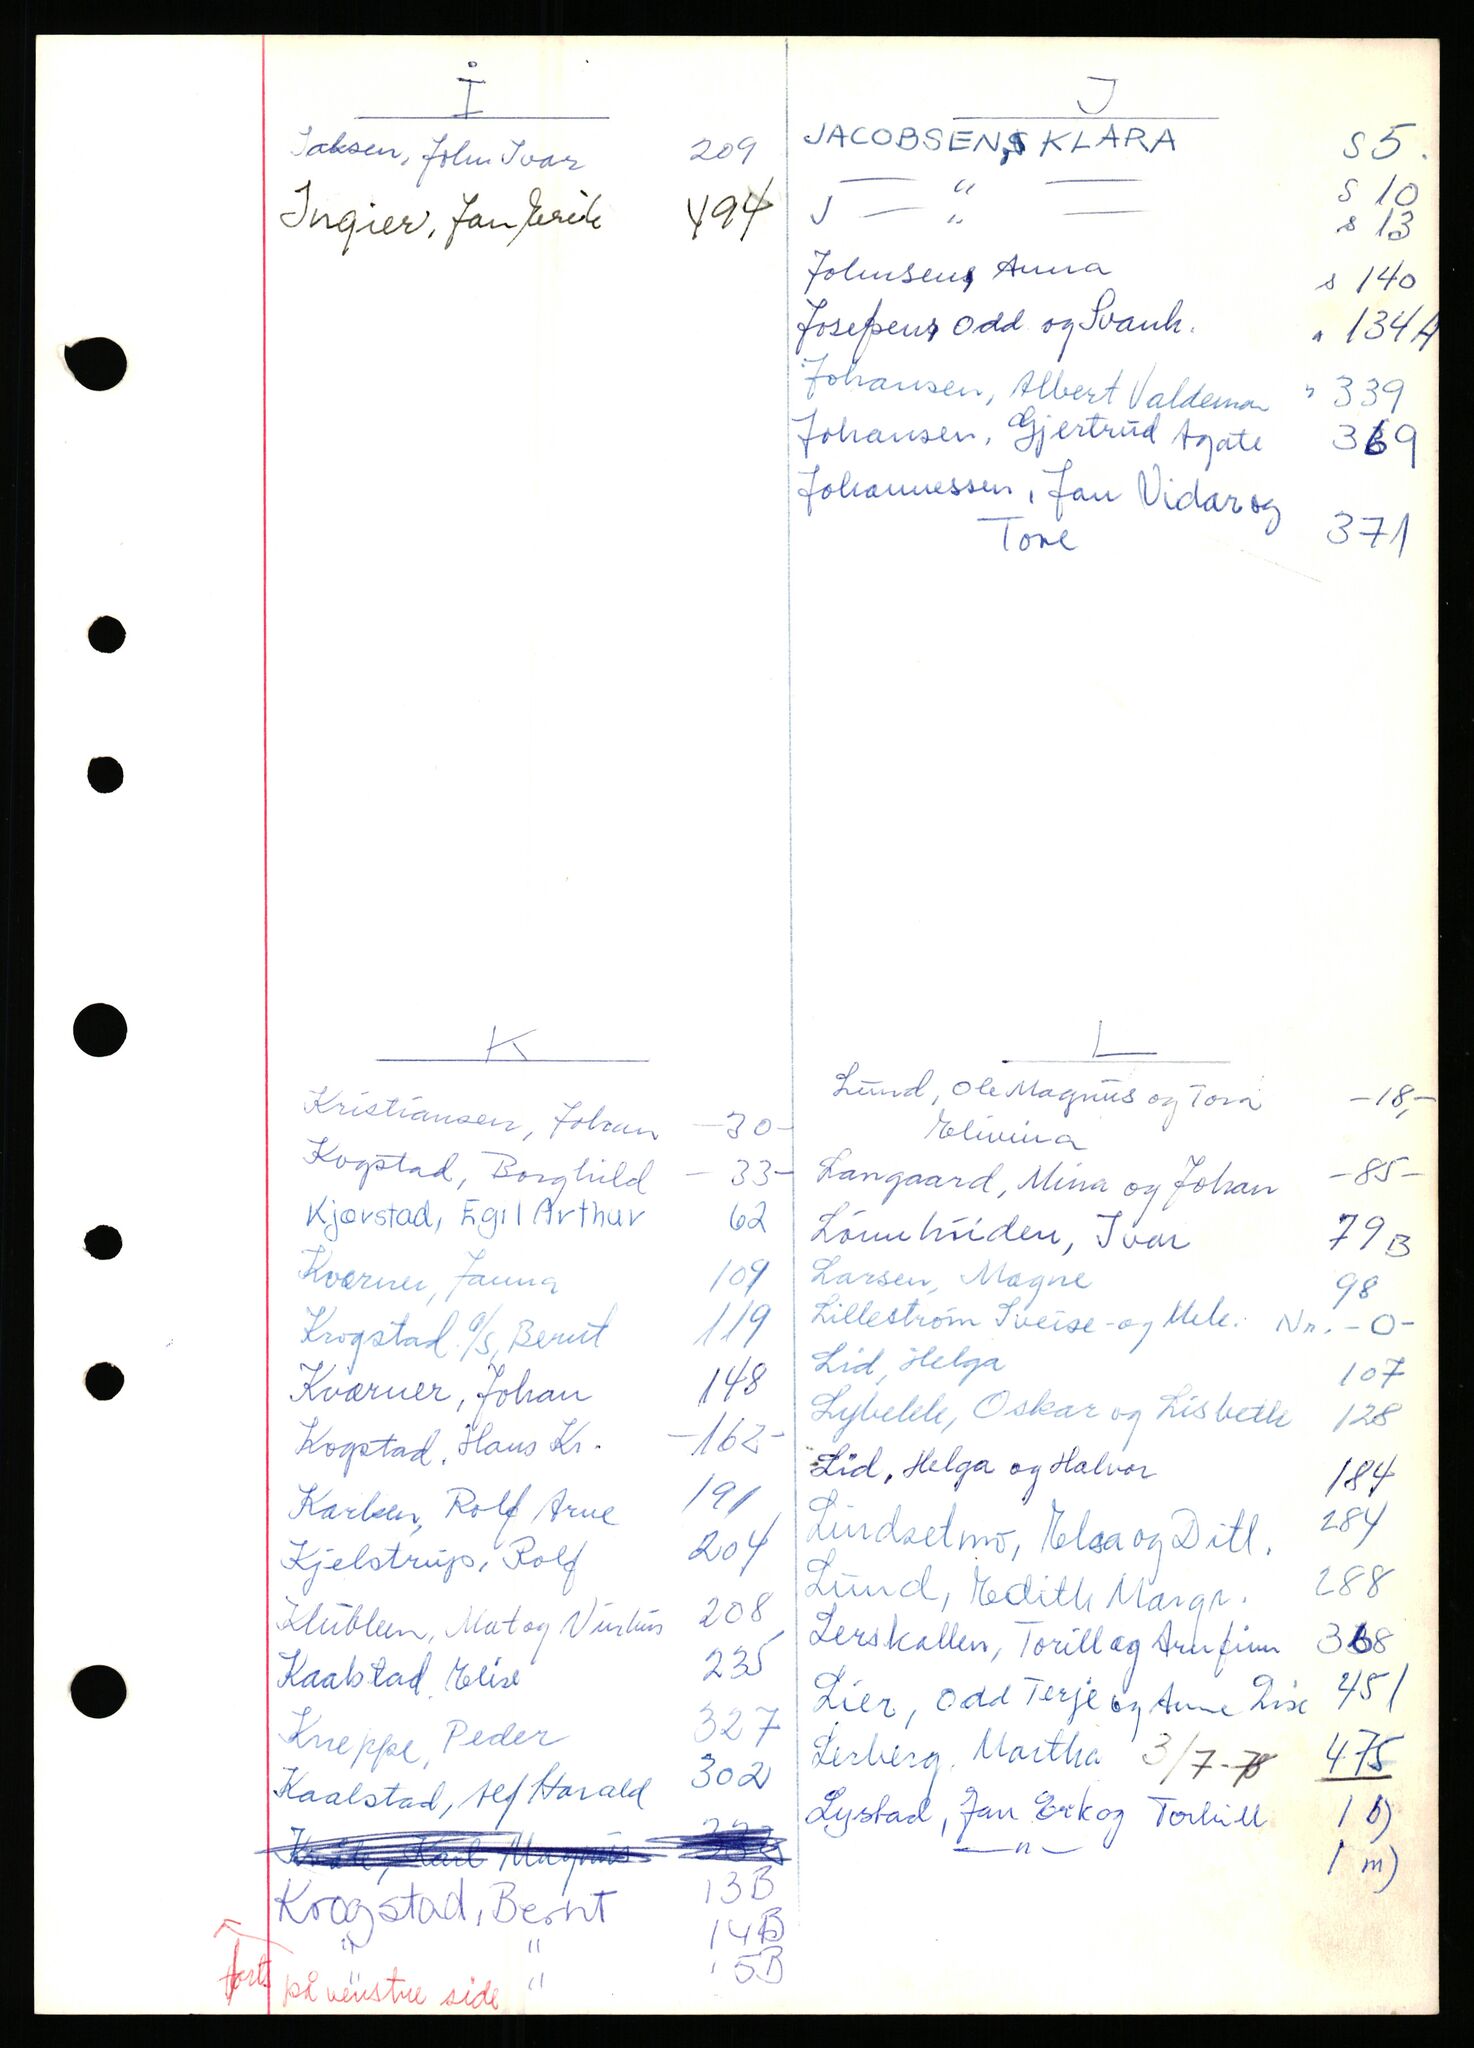 I
Isaksen, John Ivar 209
Ingier, Jan Erik 494
J
JACOBSEN, KLARA S 5.
— " — S 10
J — " — s 13
Johnsen, Anna s 140
Josefsen, Odd og Svanh. " 134 A
Johansen, Albert Valdemar " 339
Johansen, Gjertrud Agate 369
Johannessen, Jan Vidar og
Tove 371
K
Kristiansen, Johan -30-
Kogstad, Borghild -33-
Kjærstad, Egil Arthur 62
Kværner, Janna 109
Krogstad A/S, Bernt 119
Kværner, Johan 148
Kogstad, Hans Kr. -162-
Karlsen, Rolf Arne 191
Kjelstrup, Rolf 204
208
Kaalstad, Elise 235
Kneppe, Peder 327
Kaalstad, Alf Harald 302
Karl Magnus
Krogstad, Bernt 13B
" " 14B
" " 15B
forts. på venstre side
L
Lund, Ole Magnus og Tora -18,-
Elivina
Langaard, Mina og Johan -85-
Lönnhuiden, Ivar 79 B
Larsen, Magne 98
Lilleström Sveise- og Mek. Nr. -0-
Lid, Helga 107
Lybekk, Oskar og Lisbeth 128
Lid, Helga og Halvor 184
Lindsetmo, Elsa og Ditl. 284
Lund, Edith Margr. 288
Lerskallen, Torill og Arnfinn 368
Lier, Odd Terje og Anne Lise 451
Lerberg, Martha 3/7-78 475
Lystad, Jan Erik og Torhill 1 b)
— " — 1 m)